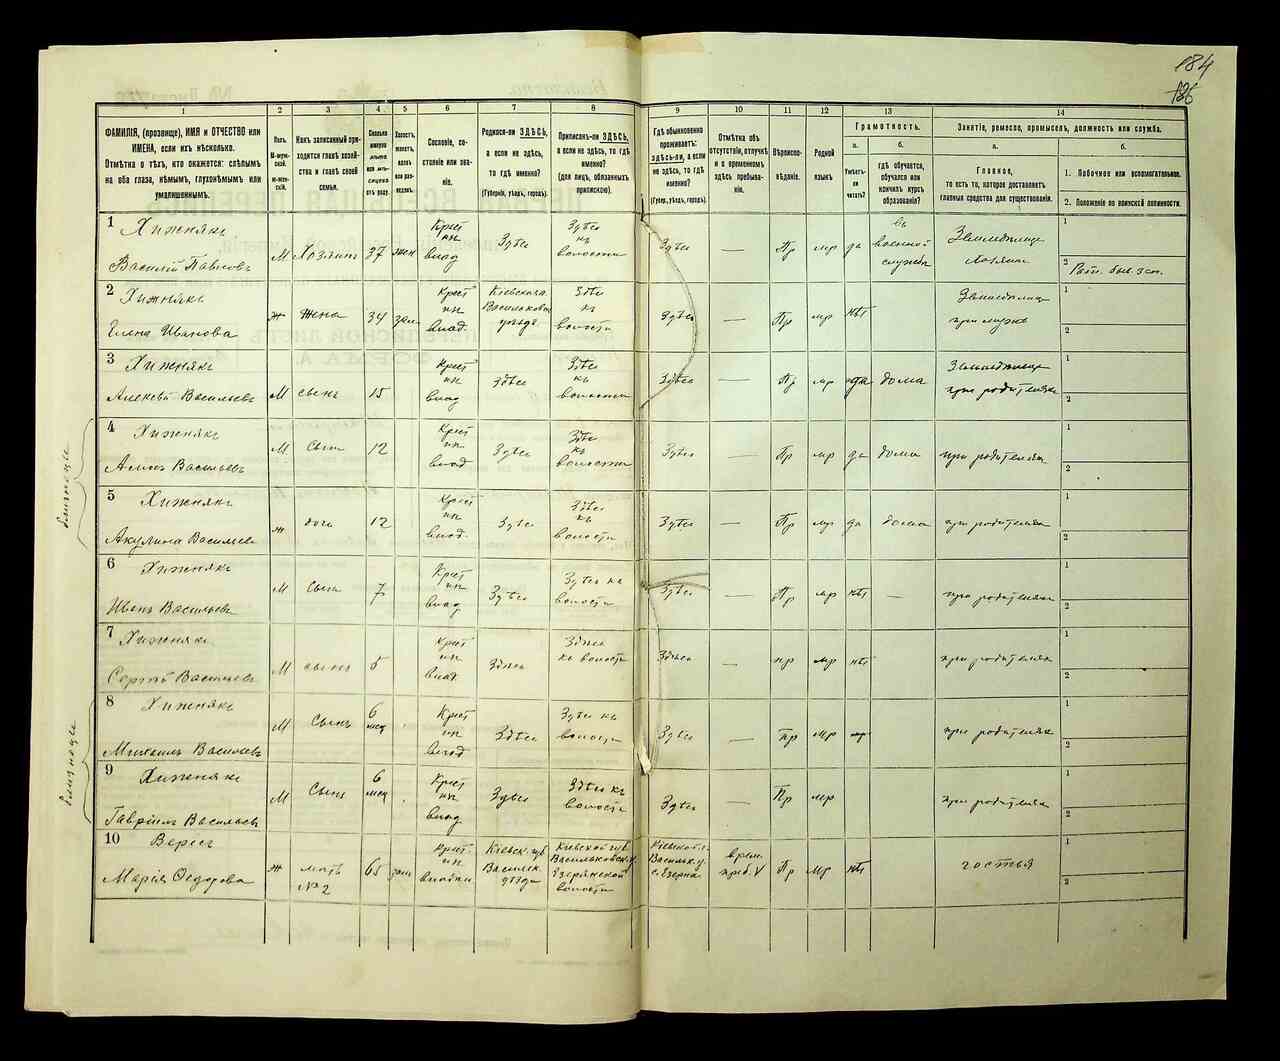 184
126
1 2 3 4 5 6 7 8 9 10 11 12 13 14
ФАМИЛІЯ, (прозвище), ИМЯ и ОТЧЕСТВО или
ИМЕНА, если ихъ нѣсколько.
Отмѣтка о тѣхъ, кто окажется: слѣпымъ
на оба глаза, нѣмымъ, глухонѣмымъ или
умалишеннымъ.
Полъ.
М-муж-
ской.
ж-жен-
скій.
Какъ записанный при-
ходится главѣ хозяй-
ства и главѣ своей
семьи.
Сколько
минуло
лѣтъ
или мѣ-
сяцевъ
отъ роду.
Холостъ,
женатъ,
вдовъ
или раз-
веденъ.
Сословіе, со-
стояніе или зва-
ніе.
Родился-ли ЗДѢСЬ,
а если не здѣсь,
то гдѣ именно?
(Губернія, уѣздъ, городъ).
Приписанъ-ли ЗДѢСЬ,
а если не здѣсь, то гдѣ
именно?
(для лицъ, обязанныхъ
припискою).
Гдѣ обыкновенно
проживаетъ:
здѣсь-ли, а если
не здѣсь, то гдѣ
именно?
(Губер., уѣздъ, городъ).
Отмѣтка объ
отсутствіи, отлучкѣ
и о временномъ
здѣсь пребыва-
ніи.
Вѣроиспо-
вѣданіе.
Родной
языкъ.
Грамотность.
а. б.
Умѣетъ-
ли
читать?
гдѣ обучается,
обучался или
кончилъ курсъ
образованія?
Занятіе, ремесло, промыселъ, должность или служба.
а. б.
Главное,
то есть то, которое доставляетъ
главныя средства для существованія.
1. Побочное или вспомогательное.
2. Положеніе по воинской повинности.
1 Хижнякъ
Василій Павловъ М Хозяинъ 37 жен Крест ин влад Здѣсь Здѣсь къ волости Здѣсь — Пр мр да въ военной службѣ Земледѣлецъ хозяинъ 1
2
2 Хижнякъ
Елена Иванова ж жена 34 зам Крест ин влад. Кіевская Васильков уѣздъ Здѣсь къ волости Здѣсь — Пр мр нѣт Земледѣлец при мужѣ 1
2
3 Хижнякъ
Алексѣй Васильевъ М сынъ 15 Крест ин влад Здѣсь Здѣсь къ волости Здѣсь — Пр мр да дома Земледѣлец при родителях 1
2
близнецы
4 Хижнякъ
Васильевъ М Сынъ 12 Крест ин влад Здѣсь Здѣсь къ волости Здѣсь — Пр мр да дома при родителях 1
2
5 Хижнякъ
Акулина Васильев ж дочь 12 Крест ин влад. Здѣсь Здѣсь къ волости Здѣсь — Пр мр да дома при родителях 1
2
6 Хижнякъ
Иванъ Васильевъ М Сынъ 7 Крест ин влад Здѣсь Здѣсь къ волости Здѣсь — Пр мр нѣт — при родителях 1
2
7 Хижнякъ
Сергѣй Васильевъ М сынъ 5 Крест ин влад. Здѣсь Здѣсь къ волости Здѣсь — пр мр нѣт при родителях 1
2
близнецы
8 Хижнякъ
Михаилъ Васильевъ М Сынъ 6 мец Крест ин влад Здѣсь Здѣсь къ волости Здѣсь — пр мр при родителях 1
2
9 Хижнякъ
Гавріилъ Васильевъ М Сынъ 6 мец Крест ин влад Здѣсь Здѣсь къ волости Здѣсь — Пр мр при родителях 1
2
10 Вересъ
Марія Ѳедорова ж мать №2 65 зам Крест. ин Кіевск. губ Васильк. уѣзда Кіевской губ Васильковск. у. Езерянской волости Кіевской г. Васильк. у. с. Езерна врем. преб. V Пр мр нѣт гостья 1
2